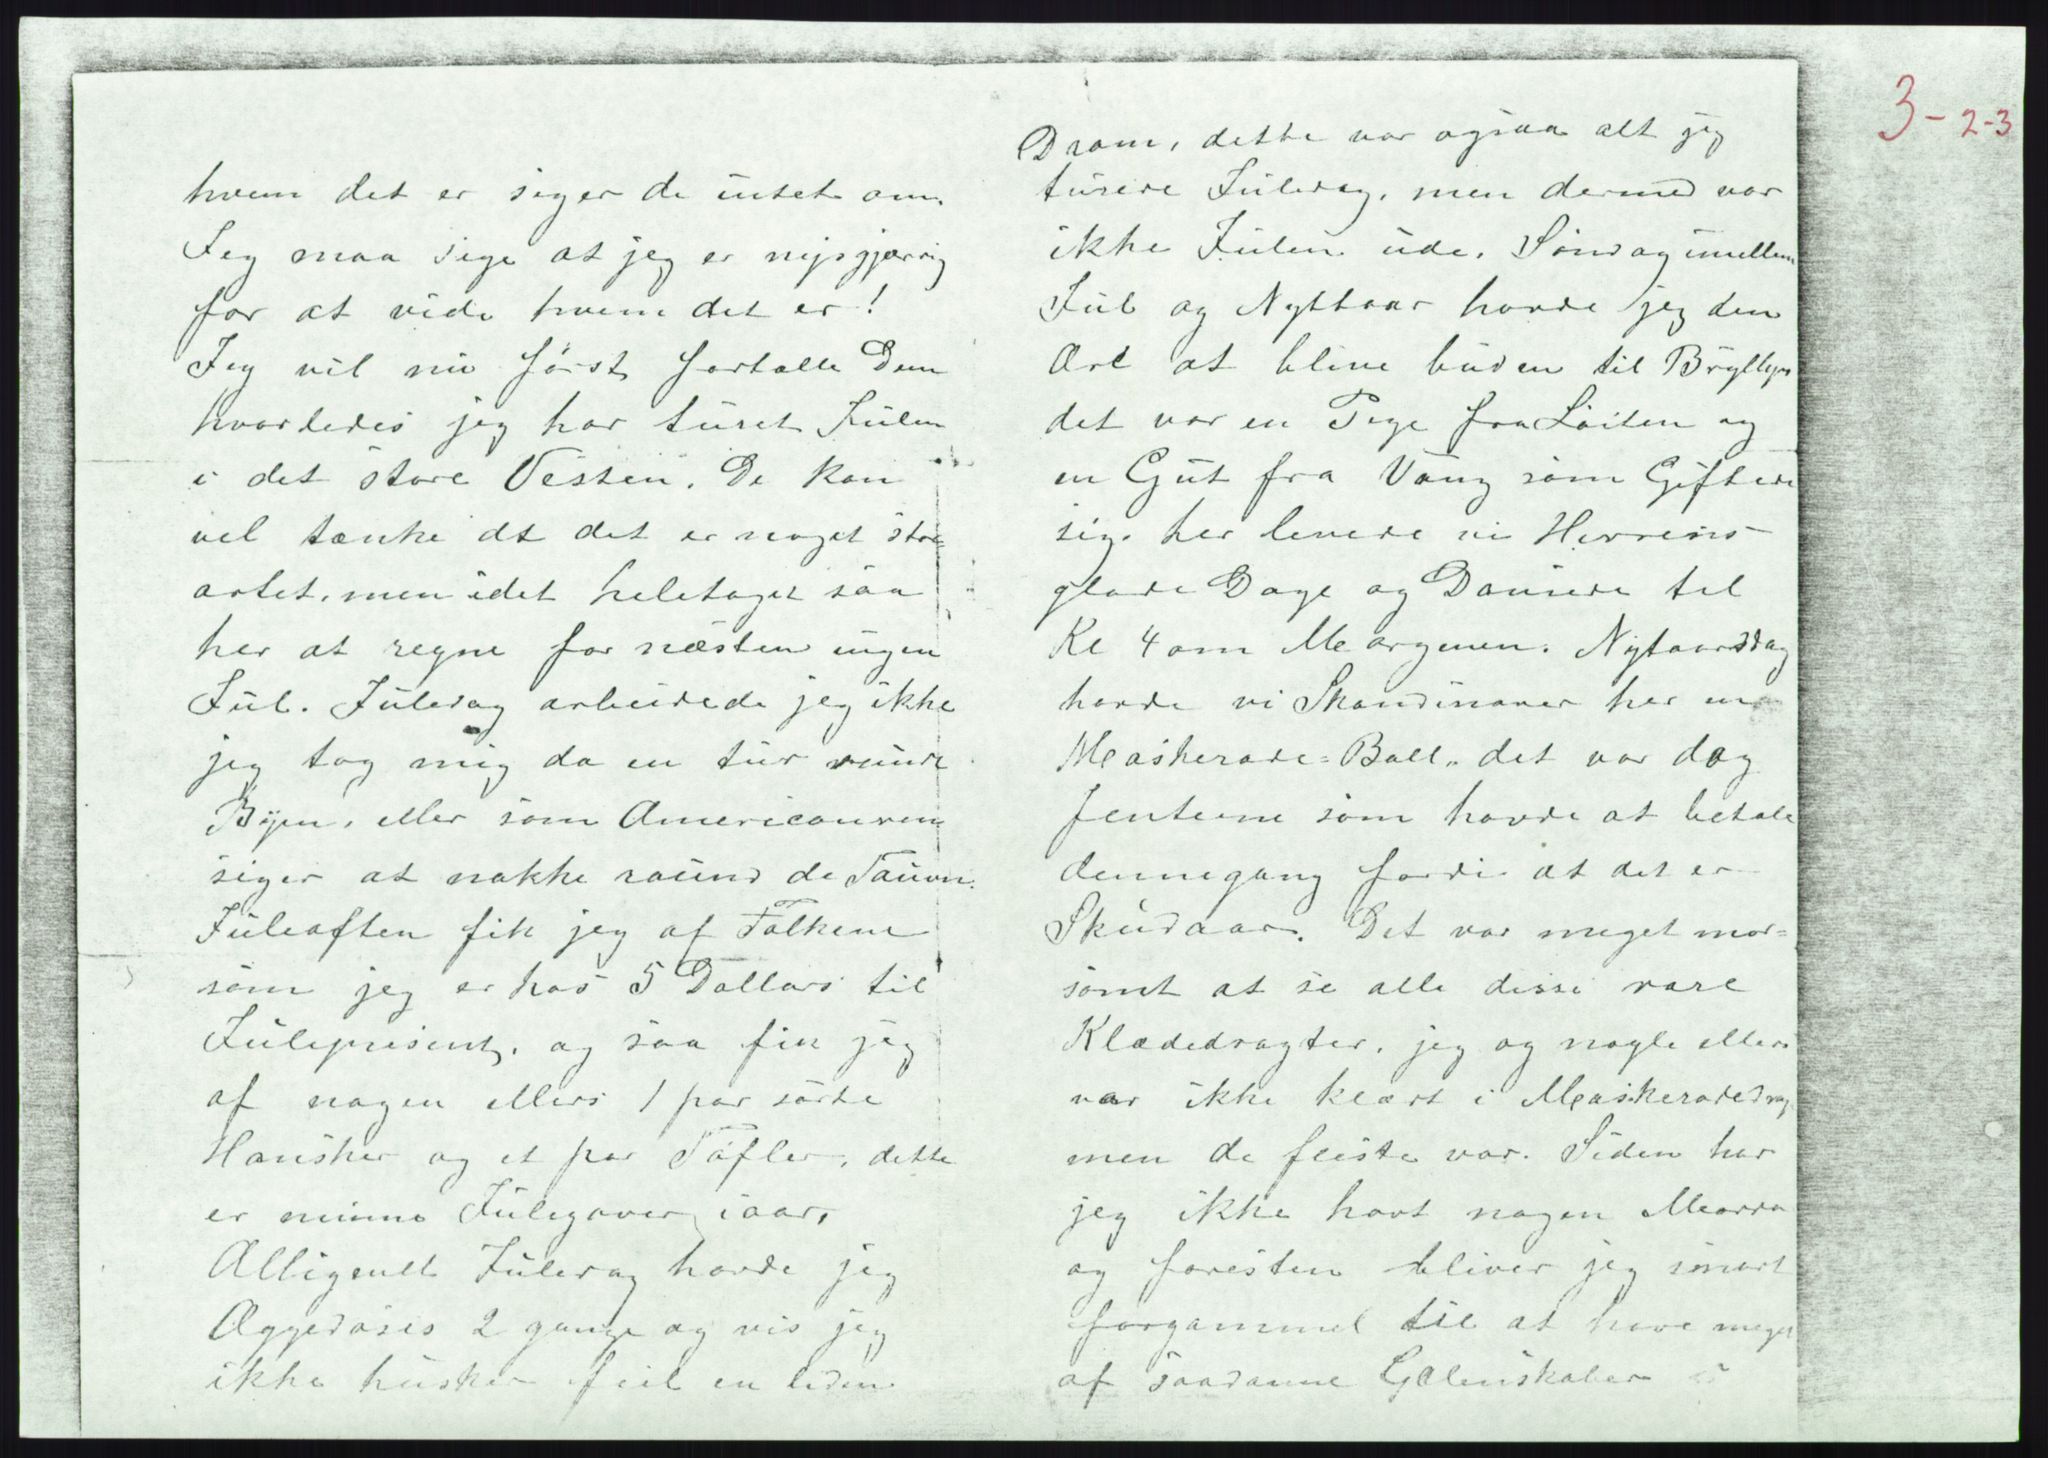 3-2-3
hvem det er siger de intet om.
Jeg maa sige at jeg er nysgjærrig
for at vide hvem det er!
Jeg vil nu først fortælle Dem
hvorledes jeg har turet Julen
i det store Vesten. De kan
vel tænke at det er noget stor=
artet, men idet heletaget saa
her at regne for næsten ingen
Jul. Juledag arbeidede jeg ikke
jeg tog mig da en tur runde
Byen, eller som Americaneren
siger at vakke raund de Tauvn.
Juleaften fik jeg af Folkene
som jeg er hos 5 Dollars til
Julepresent, og saa fik jeg
af nogen ellers 1 par sorte
Hansker og et par Tøfler, dette
er minne Julegaver iaar,
Alligevell Juledag havde jeg
Æggedosis 2 gange og vis jeg
ikke husker feil en liden
Dram, dette var ogsaa alt jeg
turede Juledag, men dermed var
ikke Julen ude. Søndag imellem
Jul og Nyttaar havde jeg den
Ære at blive buden til Bryllyp
det var en Pige fra Løiten og
en Gut fra Vang som Giftede
sig. her levede vi Herrens
glade Dage og Dansede til
Kl 4 om Morgenen. Nytaarsdag
havde vi Skandinaver her en
Maskerade=Ball, det var dog
Jenterne som havde at betale
dennegang fordi at det er
Skudaar. Det var meget mor=
somt at se alle disse rare
Klædedragter, jeg og nogle ellers
var ikke klædt i Maskeradedrag
men de fleste var. Siden har
jeg ikke havt nogen Morro
og foresten bliver jeg snart
forgammel til at have meget
af saadanne Galenskaber